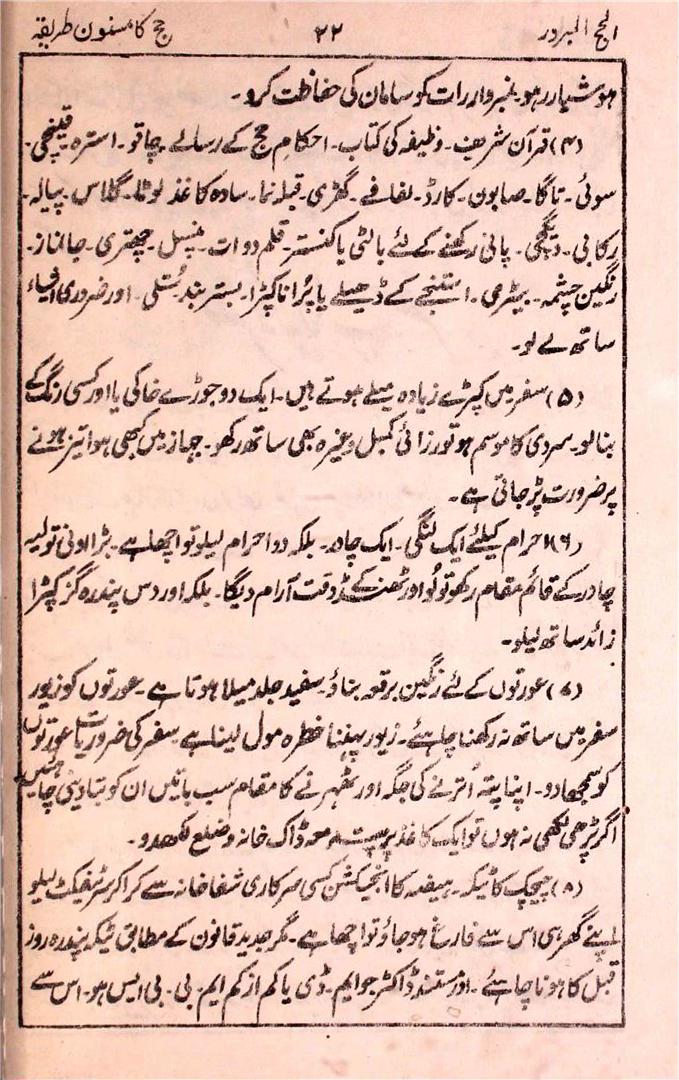 الحج المبرور ۲۲ حج کا مسنون طریقہ
ہوشیار رہو۔ نمبروار رات کو سامان کی حفاظت کرو۔
(۴) قرآن شریف۔ وظیفہ کی کتاب۔ احکامِ حج کے رسالے چاقو۔ استرہ قینچی۔
سوئی۔ تاگا۔ صابون۔ کارڈ۔ لفافے۔ گھڑی۔ قبلہ نما۔ سادہ کاغذ لوٹا۔ گلاس۔ پیالہ۔
رکابی۔ دیگچی۔ پانی رکھنے کے لئے بالٹی یا کنستر۔ قلم دوات۔ پنسل۔ چھتری۔ جانماز۔
رنگین چشمہ۔ بیٹری۔ استنجے کے ڈھیلے یا پُرانا کپڑا۔ بستر بند۔ سُتلی۔ اور ضروری اشیاء
ساتھ لے لو۔
(۵) سفر میں کپڑے زیادہ میلے ہوتے ہیں۔ ایک دو جوڑے خاکی یا اور کسی رنگ کے
بنالو۔ سردی کا موسم ہو تو رزائی کمبل وغیرہ بھی ساتھ رکھو۔ جہاز میں کبھی ہوا تیز ہونے
پر ضرورت پڑ جاتی ہے۔
(۶) احرام کیلئے ایک لنگی۔ ایک چادر۔ بلکہ دو احرام لیلو تو اچھا ہے۔ بڑا اونی تولیہ
چادر کے قائم مقام رکھو تو لُو اور ٹھنڈ کے وقت آرام دیگا۔ بلکہ اور دس پندرہ گز کپڑا
زائد ساتھ لیلو۔
(۷) عورتوں کے لئے رنگین برقعہ بناؤ۔ سفید جلد میلا ہوتا ہے۔ عورتوں کو زیور
سفر میں ساتھ نہ رکھنا چاہئے۔ زیور پہننا خطرہ مول لینا ہے۔ سفر کی ضروریات عورتوں
کو سمجھا دو۔ اپنا پتہ اُترنے کی جگہ اور ٹھہرنے کا مقام سب باتیں ان کو بتا دینی چاہئیں
اگر پڑھی لکھی نہ ہوں تو ایک کاغذ پر پتہ معہ ڈاک خانہ و ضلع لکھدو۔
(۸) چیچک کا ٹیکہ۔ ہیضہ کا انجیکشن کسی سرکاری شفاخانہ سے کرا کر سرٹیفکیٹ لیلو
اپنے گھر ہی اس سے فارغ ہو جاؤ تو اچھا ہے۔ مگر جدید قانون کے مطابق ٹیکہ پندرہ روز
قبل کا ہونا چاہئے۔ اور مستند ڈاکٹر جو ایم۔ ڈی یا کم از کم ایم۔ بی۔ بی ایس ہو۔ اس سے